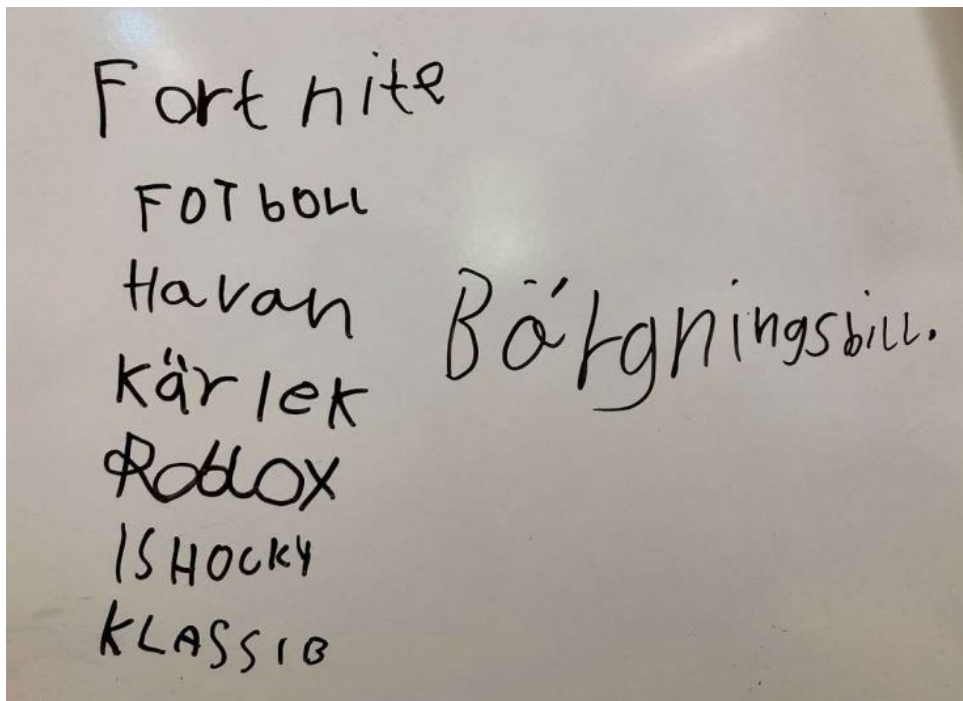 Fort nite
FOTboLL
Havan
Kärlek
Roblox
ISHOCKY
KLASSIB
Bärgningsbill.